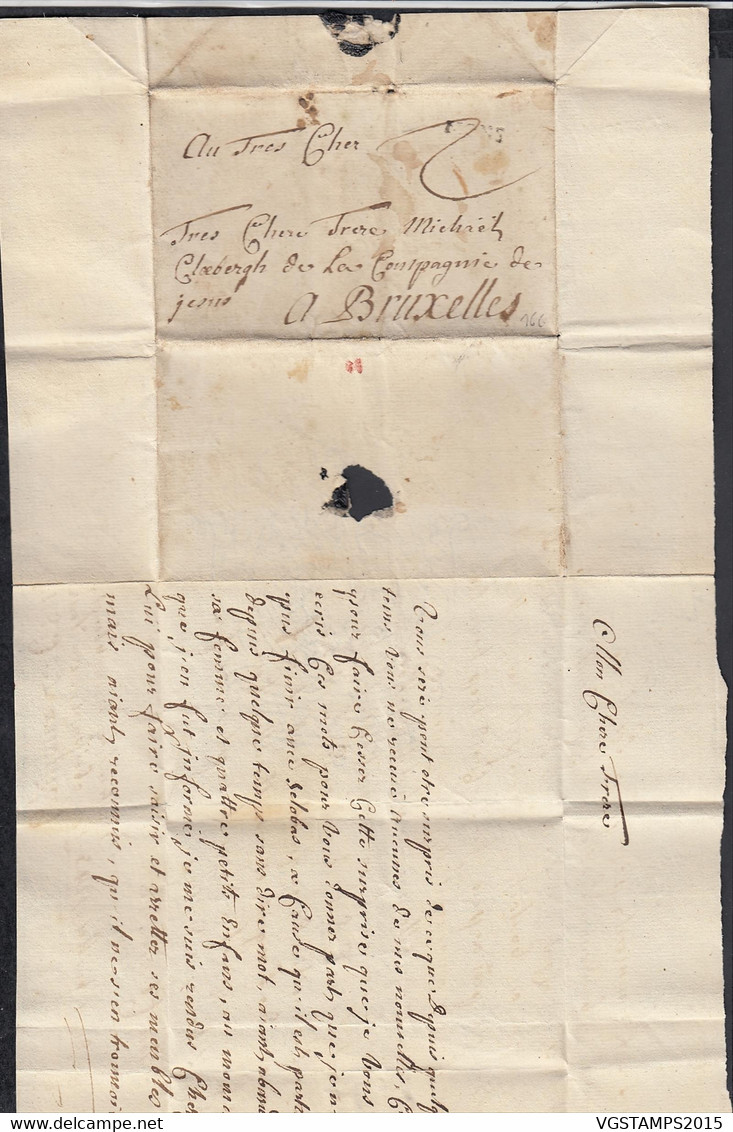 Au Tres Cher
Tres Chere Frere Michiel
Claebergh de La Compagnie de
jesus
A Bruxelles
166
Mon Chere Frere
Vous seré peut etre surpris de ce que depuis quelq
tems Vous ne receue aucunes de mes nouuelles, C
pour faire Cesser Cette surprise que je Vous
ecris Ces mots pour Vous donner part, que jen
pus finir avec delobas, a Cause qu'il est parti
depuis quelque temps sans dire mot, aiant
sa femme et quattre petits Enfans, au mom
que j'en fut informé, je me suis rendus Che
Lui pour faire saisir et arretter ses meubles
mais aiant reconnus, qu'il ne s'en trouuoi
VGSTAMPS2015